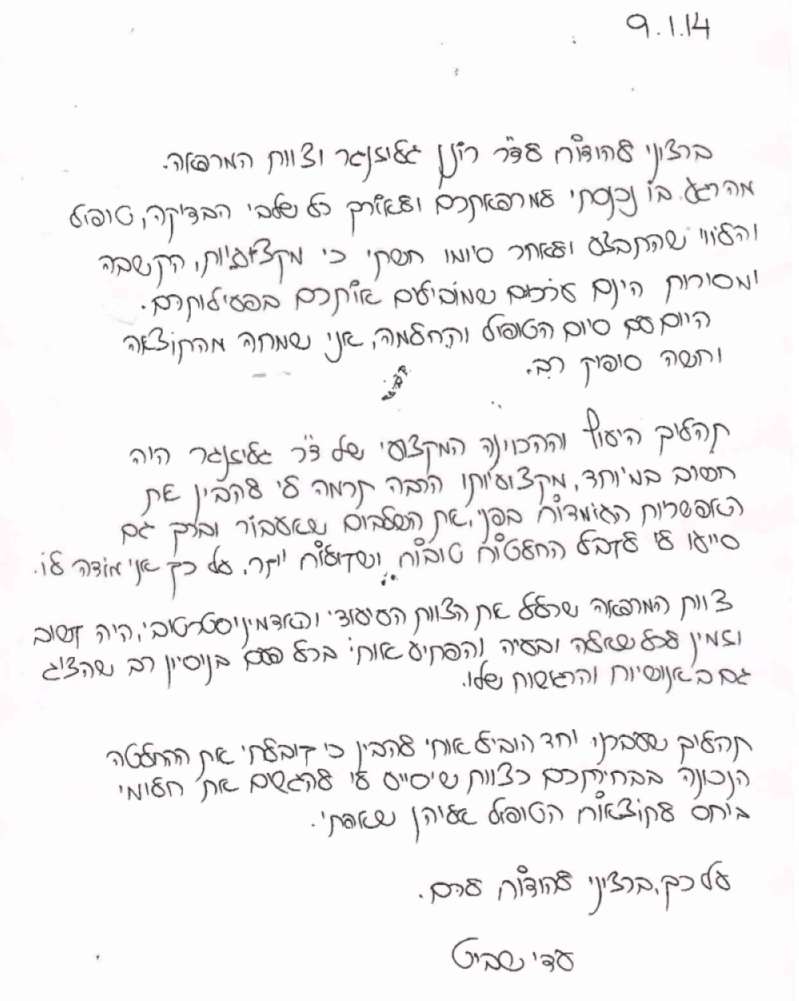 9.1.14
ברצוני להודות לד"ר רונן גלזינגר וצוות המרפאה.
מהרגע בו נכנסתי למרפאתכם ולאורך כל שלבי הבדיקה, טיפול
והליווי שהתבצע ולאחר סיומו חשתי כי מקצועיות, הקשבה
ומסירות הינם ערכים שמובילים אתכם בפעילותכם.
היום עם סיום הטיפול והחלמה, אני שמחה מהתוצאה
וחשה סיפוק רב.
תהליך היעוץ וההכוונה המקצועי של ד"ר גלזינגר היה
חשוב במיוחד, מקצועיותו הרבה תרמה לי להבין את
האפשרויות העומדות בפני, את השלבים שאעבור ובכך גם
סייעו לי לקבל החלטות טובות ושקולות יותר, על כך אני מודה לו.
צוות המרפאה שכלל את הצוות הסיעודי והאדמיניסטרטיבי, היה קשוב
וזמין לכל שאלה ובעיה והפתיע אותי בכל פעם בניסיון רב שהציג
גם באנושיות והרגישות שלו.
תהליך שעברנו יחד הוביל אותי להבין כי קיבלתי את ההחלטה
הנכונה בבחירתכם כצוות שיסייע לי להגשים את חלומי
ביחס לתוצאות הטיפול אליהן שאפתי.
על כך, ברצוני להודות לכם.
עדי שביט